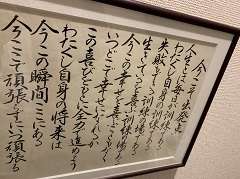 今こそ出発点
人生とは毎日が訓練である
わたくし自身の訓練場である
失敗もできる訓練場である
生きているを喜ぶ訓練場である
今この幸せを喜ぶこともなく
いつどこで幸せになれるか
この喜びをもとに全力で進めよう
わたくし自身の将来は
今この瞬間ここにある
今ここで頑張らずにいつ頑張る